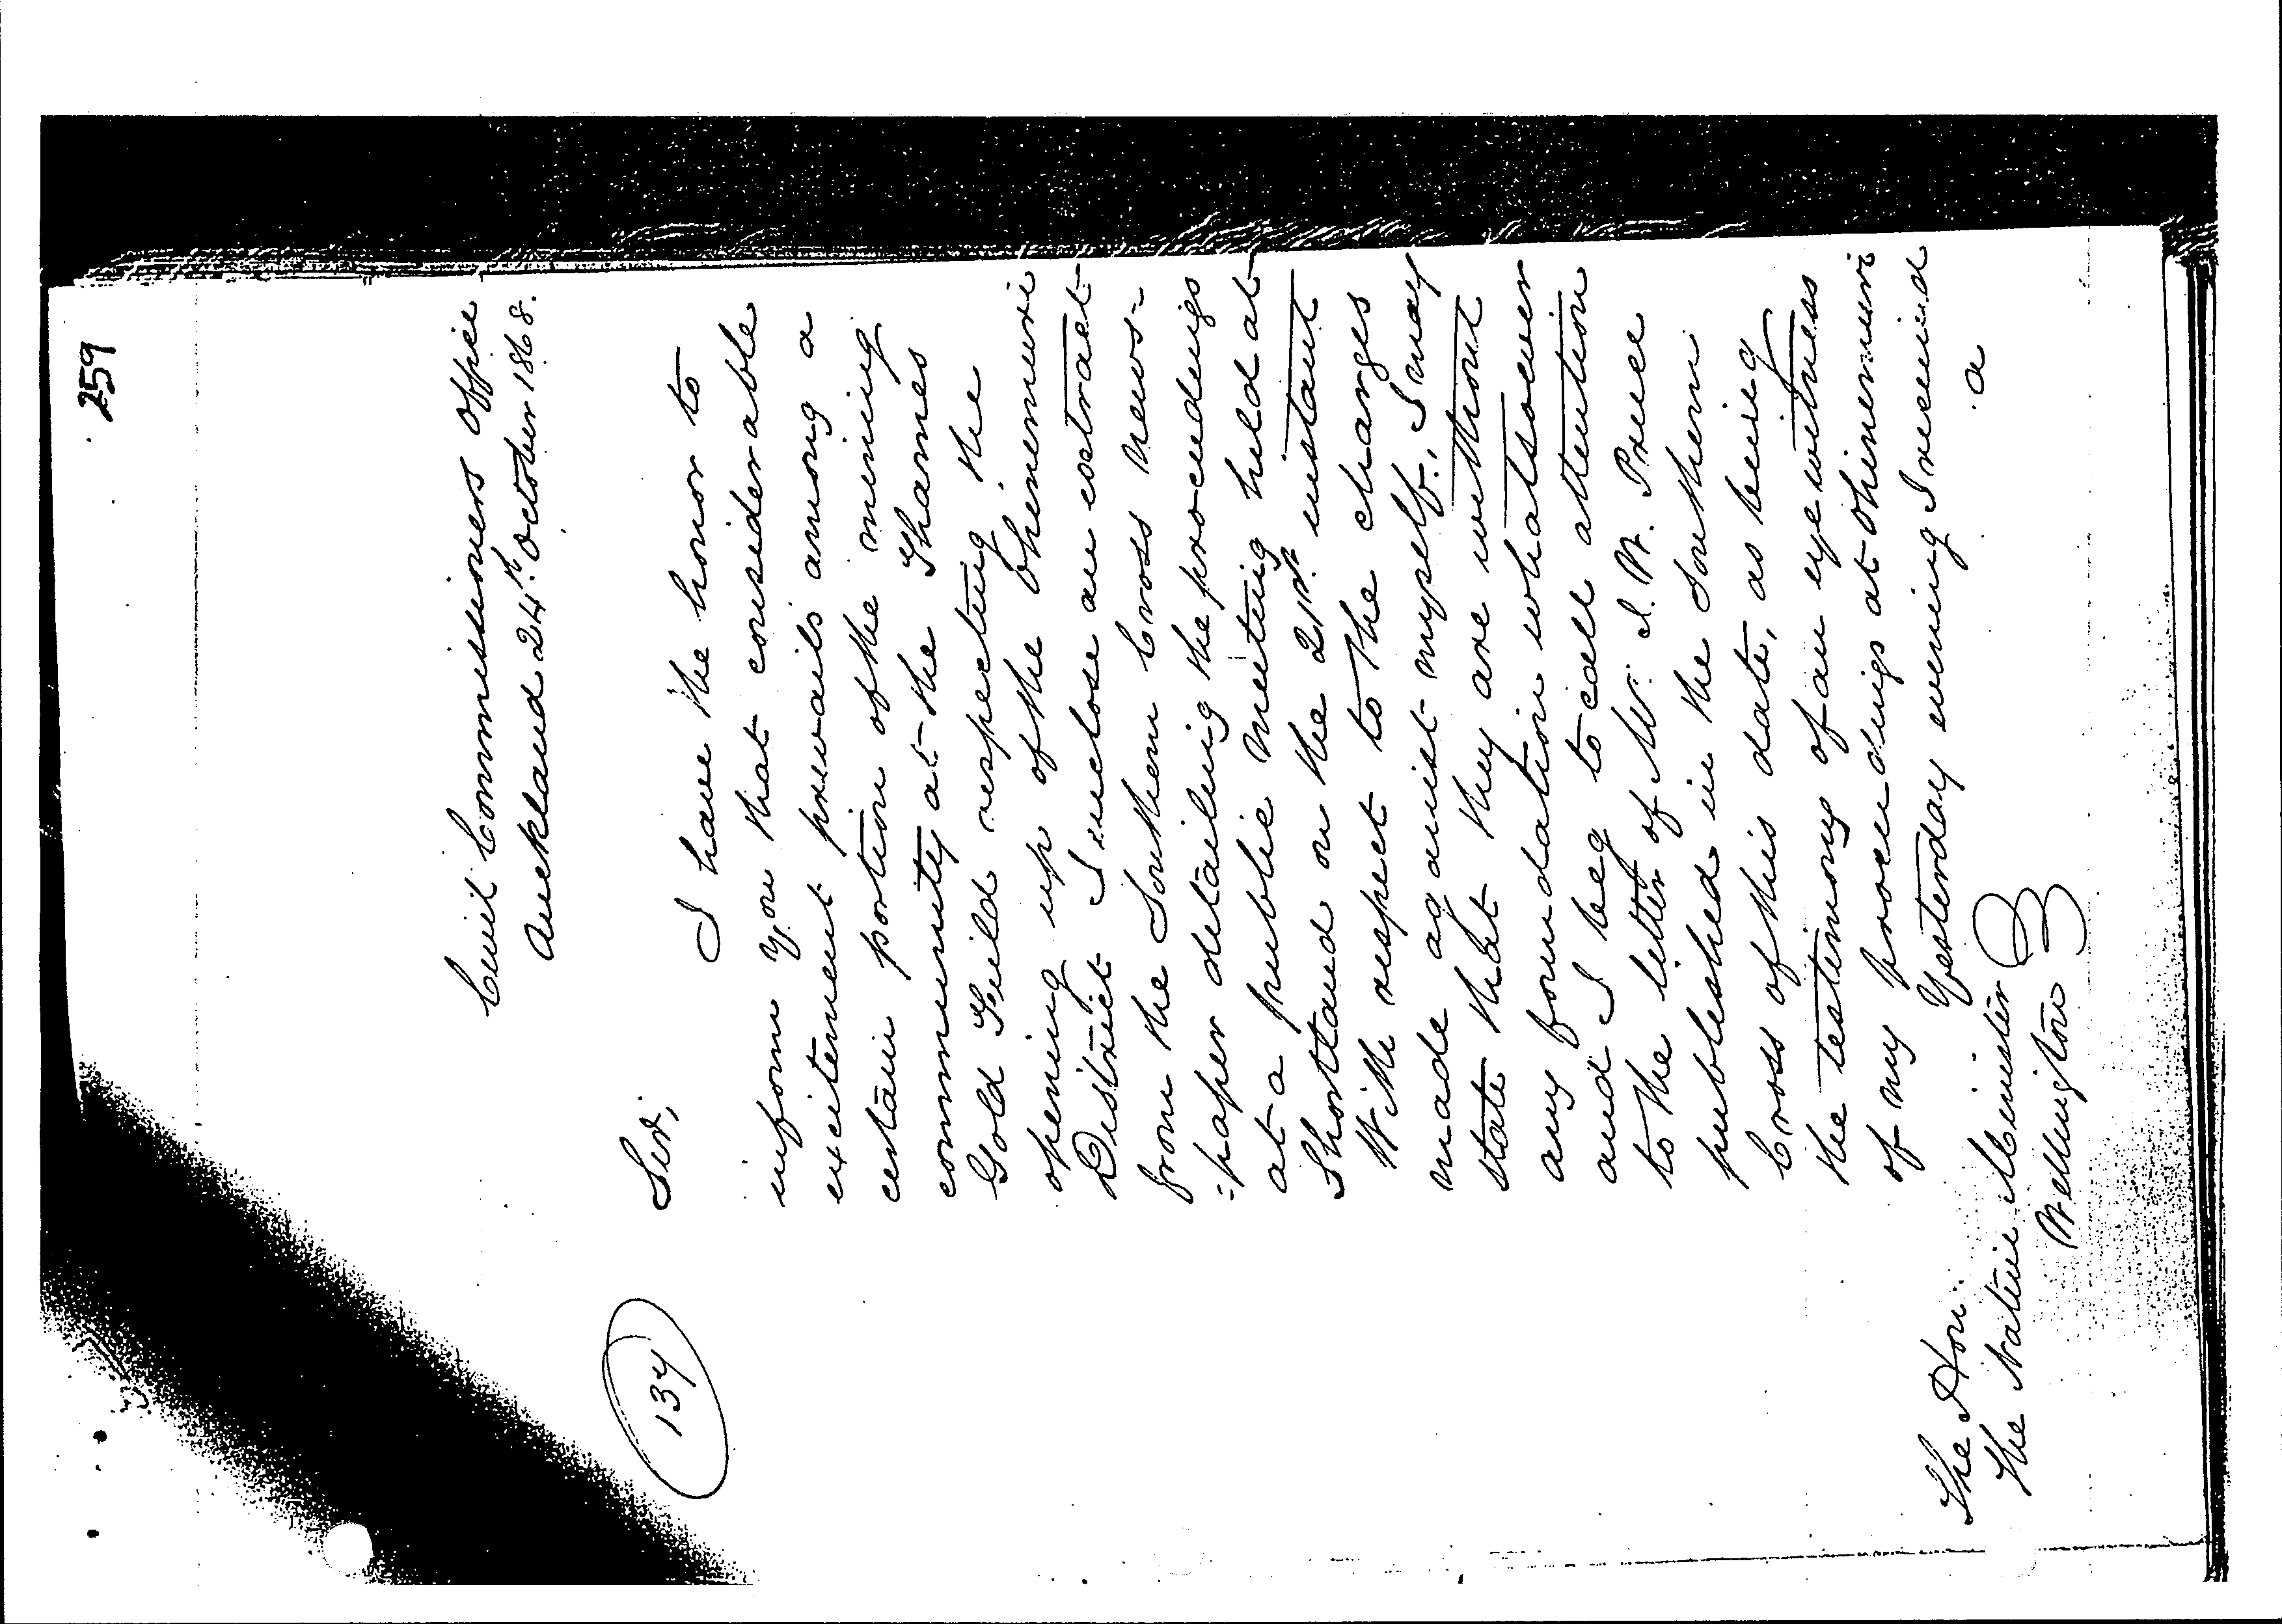 259
Civil Commissioners Office
Auckland 24th. October 1868.
Sir,
137
I have the honor to
inform you that considerable
excitement prevails among a
certain portion of the mining
community at the Thames
Gold Field respecting the
opening up of the Ohinemuri
District I enclose an extract
from the Southern Cross news-
=paper detailing the proceedings
at a public meeting held at
Shortland on the 21st. instant
With respect to the charges
made against myself, I may
state that they are without
any foundation whatsoever
and I beg to call attention
to the letter of Mr. J. W. Price
published in the Southern
Cross of this date, as being
the testimony of an eye witness
of my proceedings at Ohinemuri
Yesterday evening I received
a
The Hon.
The Native Minister
Wellington